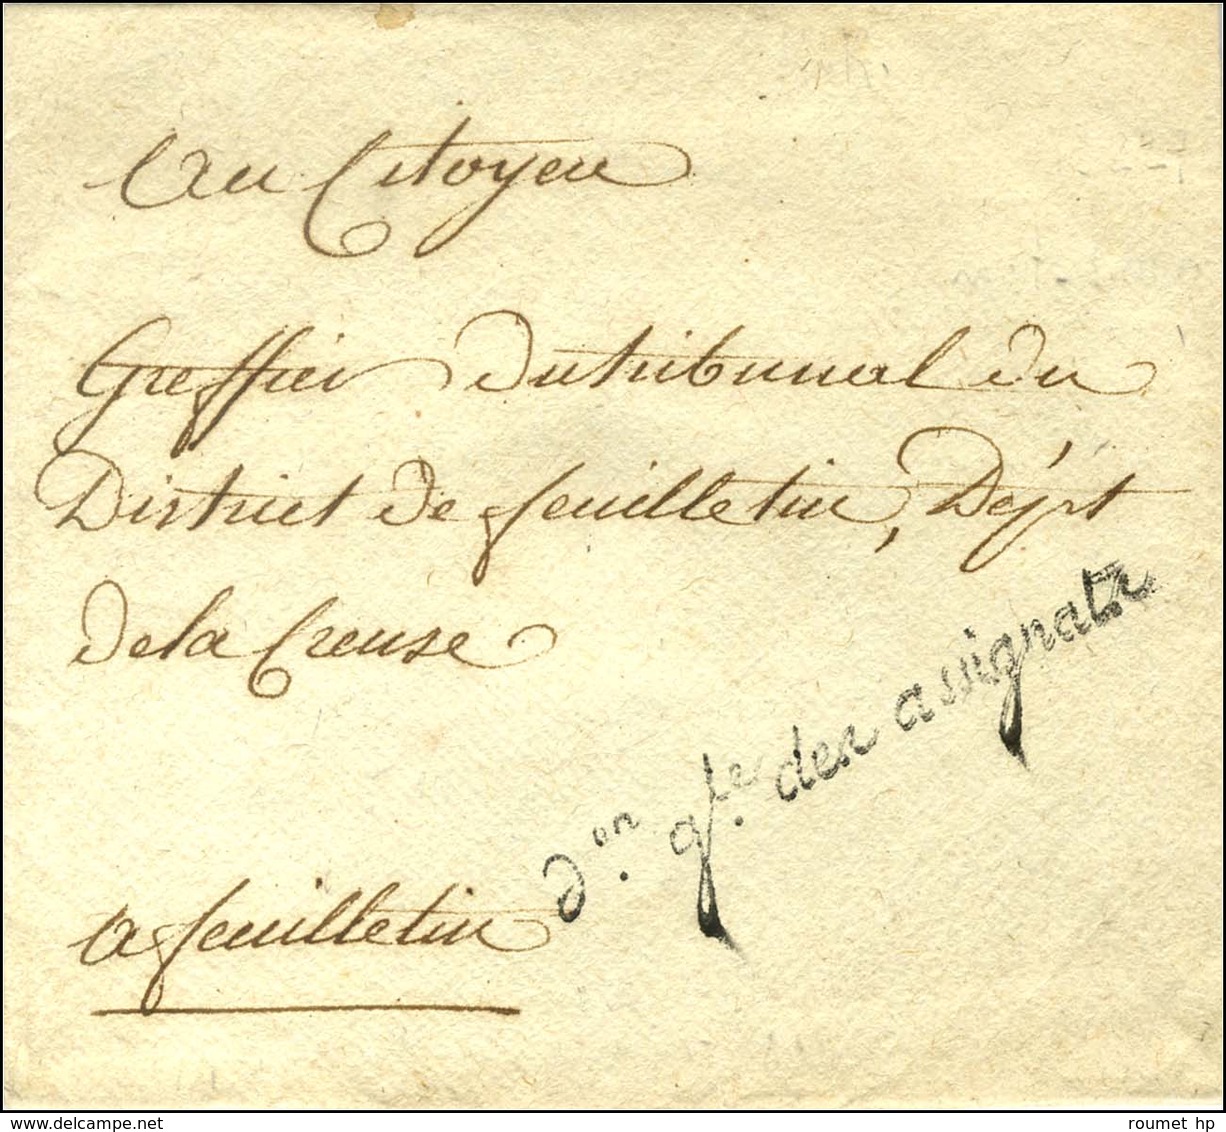 Au Citoyen
Greffier du tribunal du
District de feuilletin, Dépt
de la Creuse
d.on g.le des assignats
a feuilletin
delcampe.net
roumet hp